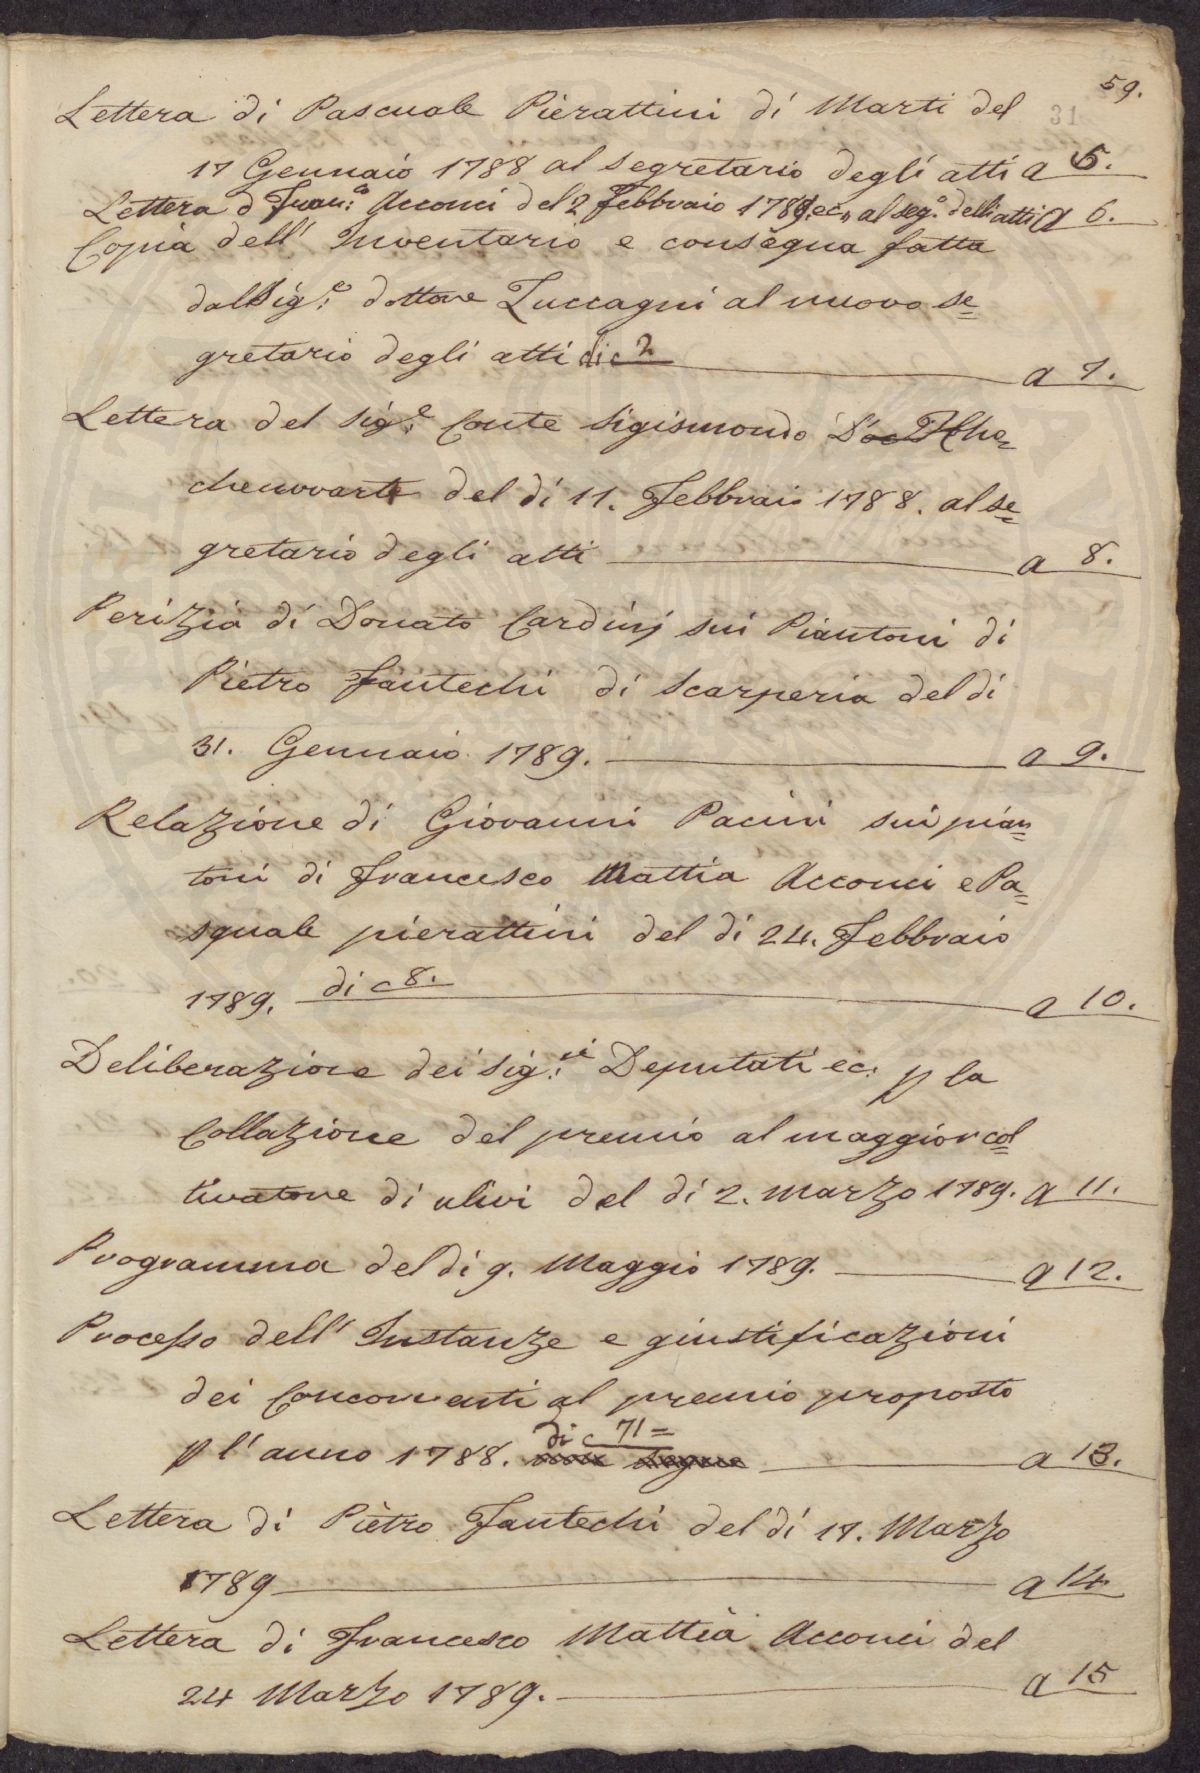 59.
31
Lettera di Pascuale Pierattini di Marti del
17 Gennaio 1788 al segretario degli atti a 5.
Lettera d Fran:co Acconci del 2 Febbraio 1789. ec. al seg.o delli atti a 6.
Copia dell' Inventario e consegna fatta
dal Sig:e dottore Zuccagni al nuovo se=
gretario degli atti di c 2 a 7.
Lettera del Sig:e Conte Sigismondo
del dì 11. Febbraio 1788. al se=
gretario degli atti a 8.
Perizia di Donato Cardinj sui Piantoni di
Pietro Fantechi di Scarperia del dì
31. Gennaio 1789. a 9.
Relazione di Giovanni Pacini sui pian=
toni di Francesco Mattia Acconci e Pa=
squale pierattini del dì 24. Febbraio
1789. di c 8. a 10.
Deliberazione dei Sig:ri Deputati ec: p la
Collazione del premio al maggior col=
tivatore di ulivi del dì 2. Marzo 1789. a 11.
Programma del dì 9. Maggio 1789. a 12.
Processo dell' Instanze e giustificazioni
dei Concorrenti al premio proposto
p l'anno 1788. di c 71= a 13.
Lettera di Pietro Fantechi del dì 17. Marzo
1789 a 14.
Lettera di Francesco Mattia Acconci del
24 Marzo 1789. a 15